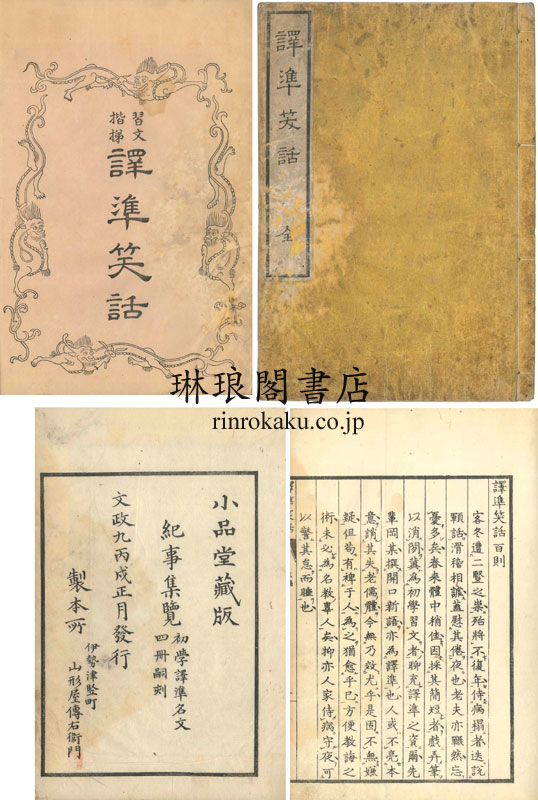 習文
揩梯
譯準笑話
譯準笑話 全
琳琅閣書店
rinrokaku.co.jp
小品堂藏版
紀事集覽 初學譯準名文
四冊嗣刻
文政九丙戌正月發行
製本所 伊勢津竪町
山形屋傳右衛門
譯準笑話百則
客冬遭二豎之巢殆將不復年侍病榻者迭說
顆話滑稽相謔蓋慰其倦夜也老夫亦顋然忘
憂多矣春來體中稍佳因採其簡短者戲弄筆
以消閑冀為初學習文者聊充譯準之資爾先
輩岡某撰開口新語亦為譯準也人或不亮本
意誚其失老儒體今無乃效尤乎是固不無嫌
疑但苟有裨于人為之猶愈乎已方便教誨之
術未必為名教辠人矣抑亦人家侍病守夜可
以警其怠而睡也